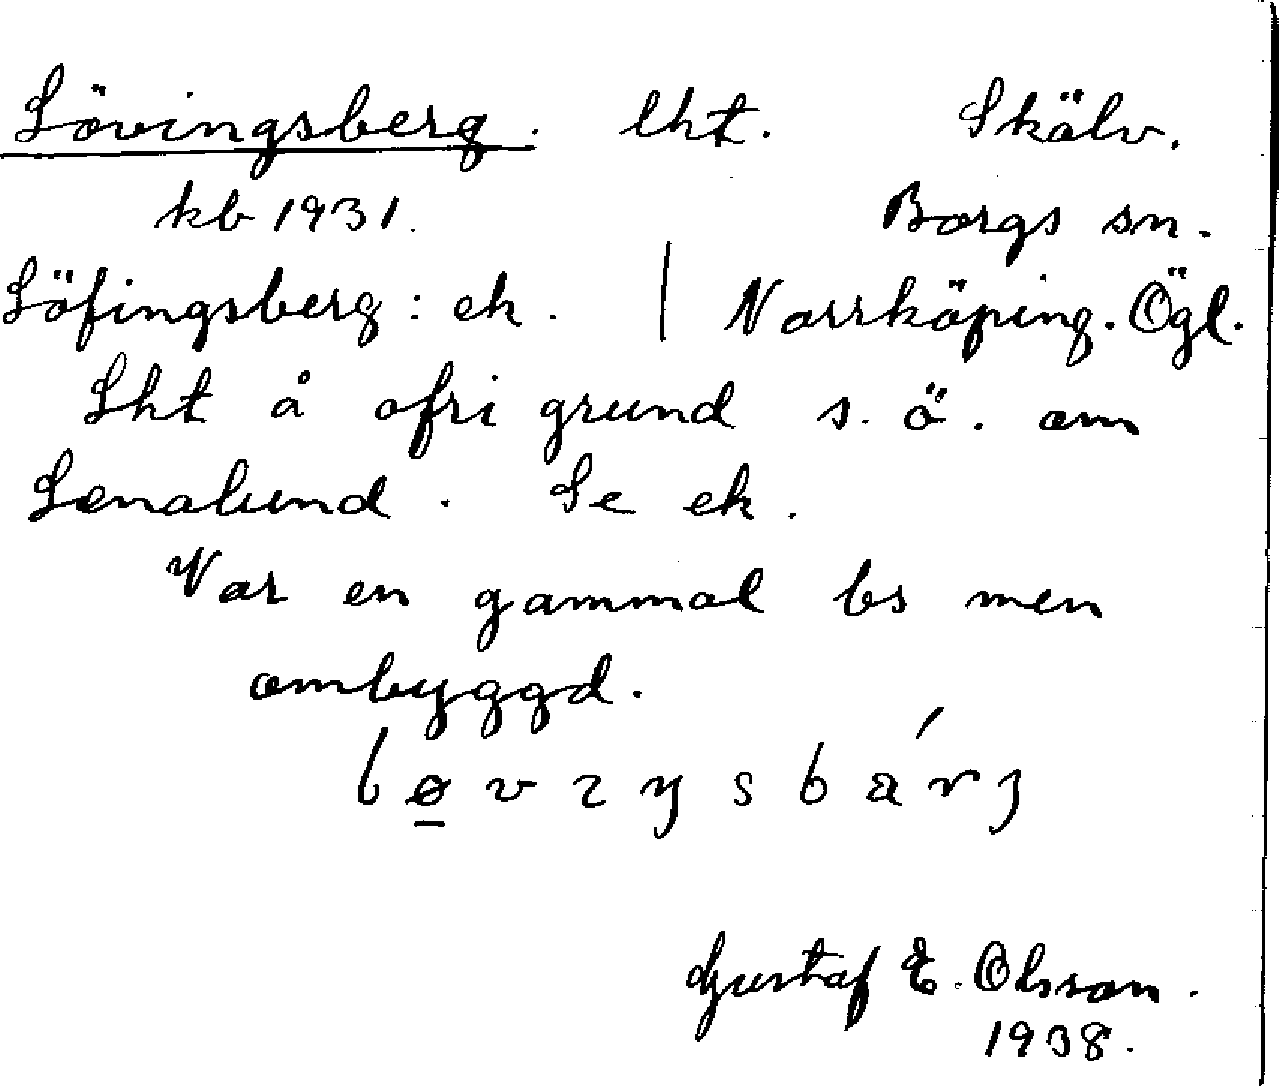 Lövingsberg. lht. Skälv.
kb 1931. Borgs sn.
Löfingsberg: ek. | Norrköping. Ögl.
Lht å ofri grund s. ö. om
Lenalund. Se ek.
Var en gammal bs men
ombyggd.
Gustaf E. Olsson.
1938.